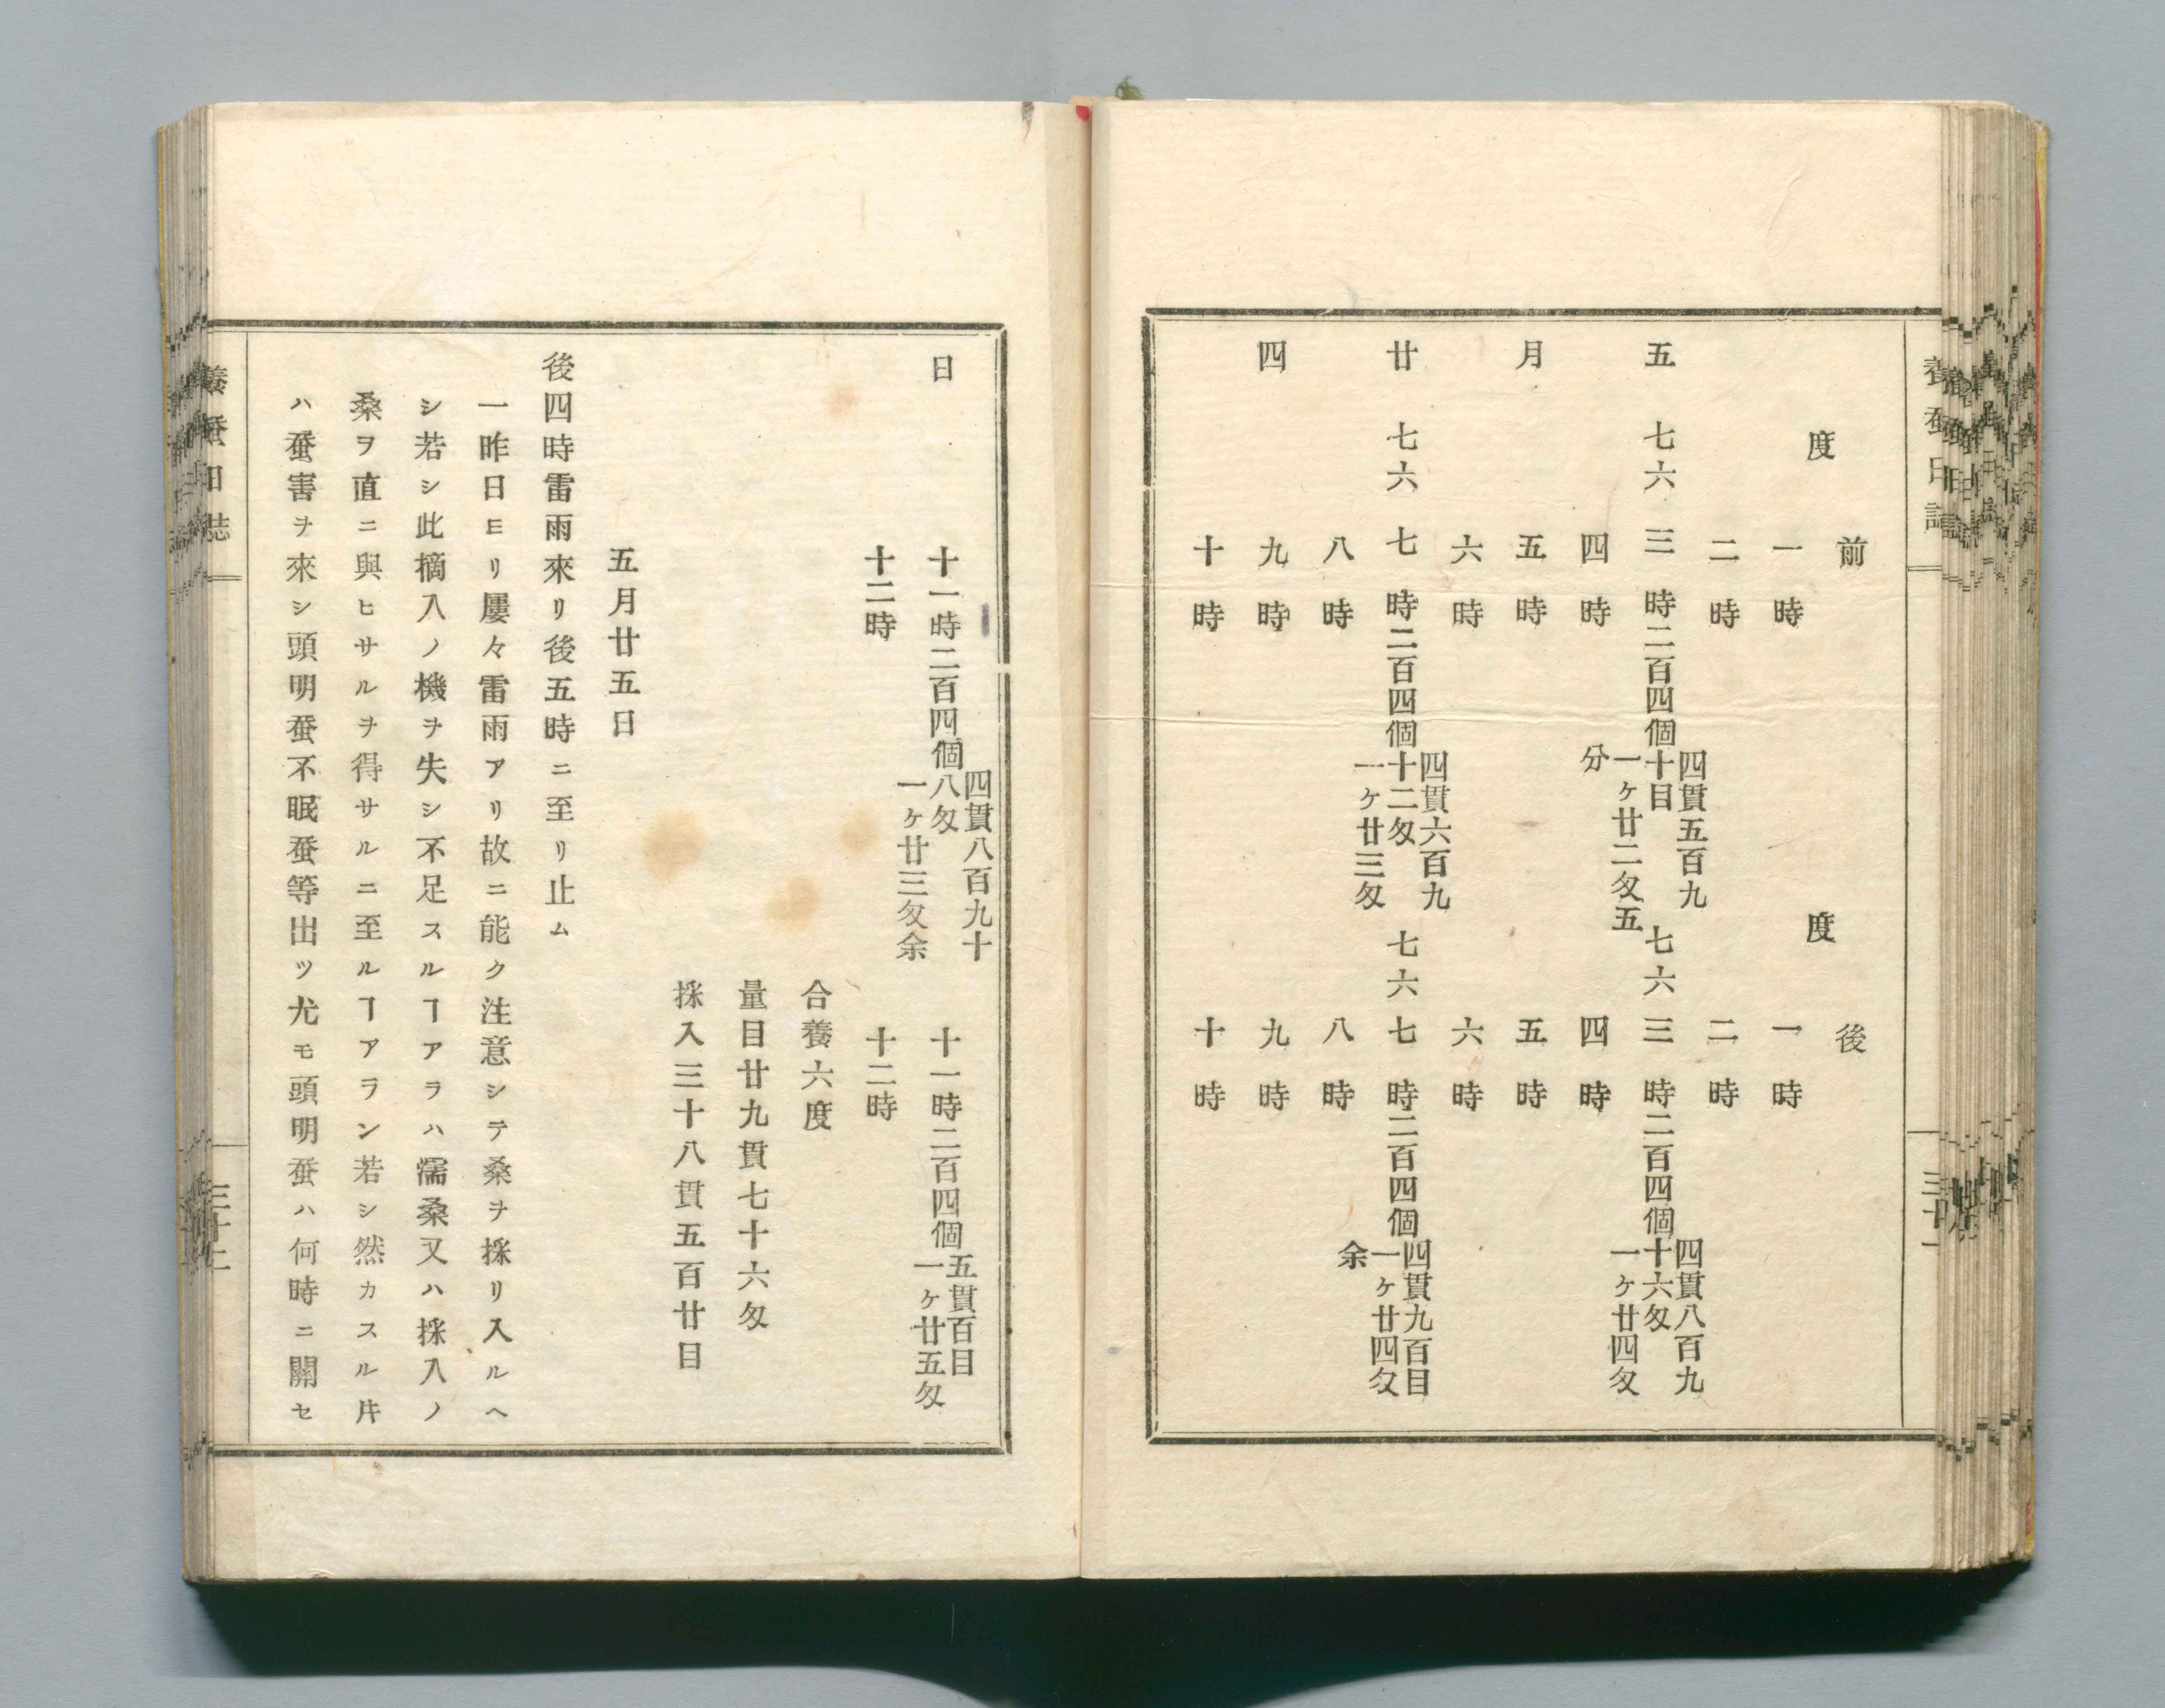 養蚕日誌
三十一
前　後
度　度
一時　一時
二時　二時
五　七六　三時二百四個　四貫五百九十目一ヶ廿二匁五分　七六　三時二百四個　四貫八百九十六匁一ヶ廿四匁
四時　四時
月　五時　五時
六時　六時
廿　七六　七時二百四個　四貫六百九十二匁一ヶ廿三匁　七六　七時二百四個　四貫九百目一ヶ廿四匁余
八時　八時
四　九時　九時
十時　十時
日　十一時二百四個　四貫八百九十八匁一ヶ廿三匁余　十一時二百四個　五貫百目一ヶ廿五匁
十二時　十二時
合養六度
量目廿九貫七十六匁
採入三十八貫五百廿目
五月廿五日
後四時雷雨來リ後五時ニ至リ止ム
一昨日ヨリ屢々雷雨アリ故ニ能ク注意シテ桑ヲ採リ入ルヘ
シ若シ此摘入ノ機ヲ失シ不足スルヿアラハ濡桑又ハ採入ノ
桑ヲ直ニ與ヒサルヲ得サルニ至ルヿアラン若シ然カスル片
ハ蚕害ヲ來シ頭明蚕不眠蚕等出ツ尤モ頭明蚕ハ何時ニ關セ
養蚕日誌